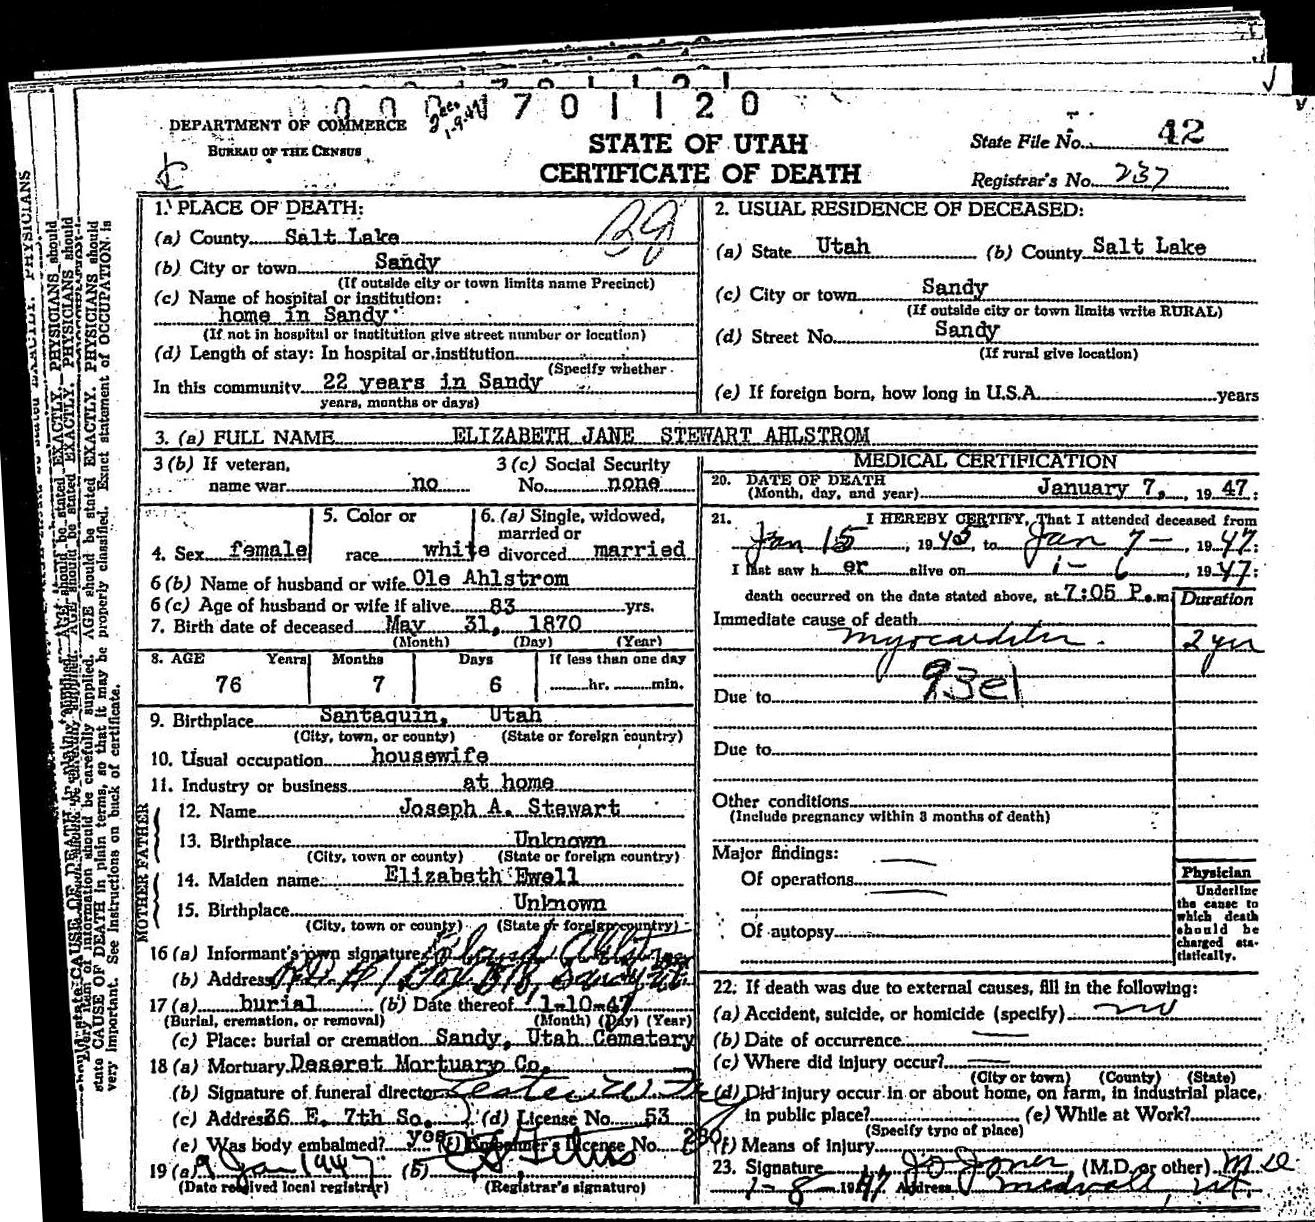 0 0 0 4 7 0 1 1 2 0
DEPARTMENT OF COMMERCE
BUREAU OF THE CENSUS
STATE OF UTAH
CERTIFICATE OF DEATH
State File No. 42
Registrar's No. 237
1. PLACE OF DEATH:
(a) County Salt Lake
(b) City or town Sandy
(If outside city or town limits name Precinct)
(c) Name of hospital or institution:
home in Sandy
(If not in hospital or institution give street number or location)
(d) Length of stay: In hospital or institution
(Specify whether
In this community 22 years in Sandy
years, months or days)
2. USUAL RESIDENCE OF DECEASED:
(a) State Utah (b) County Salt Lake
(c) City or town Sandy
(If outside city or town limits write RURAL)
(d) Street No. Sandy
(If rural give location)
(e) If foreign born, how long in U.S.A. years
3. (a) FULL NAME ELIZABETH JANE STEWART AHLSTROM
3 (b) If veteran, 3 (c) Social Security
name war no No. none
4. Sex female
5. Color or
race white
6. (a) Single, widowed,
married or
divorced married
6 (b) Name of husband or wife Ole Ahlstrom
6 (c) Age of husband or wife if alive 83 yrs.
7. Birth date of deceased May 31, 1870
(Month) (Day) (Year)
8. AGE Years Months Days If less than one day
76 7 6 hr. min.
9. Birthplace Santaquin, Utah
(City, town, or county) (State or foreign country)
10. Usual occupation housewife
11. Industry or business at home
FATHER
12. Name Joseph A. Stewart
13. Birthplace Unknown
(City, town or county) (State or foreign country)
MOTHER
14. Maiden name Elizabeth Ewell
15. Birthplace Unknown
(City, town, or county) (State or foreign country)
16 (a) Informant's own signature Ahlstrom
(b) Address Sandy Ut.
17 (a) burial (b) Date thereof 1-10-47
(Burial, cremation, or removal) (Month) (Day) (Year)
(c) Place: burial or cremation Sandy, Utah Cemetery
18 (a) Mortuary Deseret Mortuary Co.
(b) Signature of funeral director
(c) Address 36 E. 7th So. (d) License No. 53
(e) Was body embalmed? yes (f) Embalmer's License No.
19 (a) 9 Jan 1947 (b)
(Date received local registrar) (Registrar's signature)
MEDICAL CERTIFICATION
20. DATE OF DEATH
(Month, day, and year) January 7, 1947
21. I HEREBY CERTIFY, That I attended deceased from
Jan 15, 1945, to Jan 7-, 1947
I last saw her alive on 1-6, 1947
death occurred on the date stated above, at 7:05 P.m. Duration
Immediate cause of death
myocarditis. 2 yrs
Due to
Due to
Other conditions
(Include pregnancy within 3 months of death)
Major findings:
Of operations
Of autopsy
Physician
Underline
the cause to
which death
should be
charged sta-
tistically.
22. If death was due to external causes, fill in the following:
(a) Accident, suicide, or homicide (specify) no
(b) Date of occurrence
(c) Where did injury occur?
(City or town) (County) (State)
(d) Did injury occur in or about home, on farm, in industrial place,
in public place? (e) While at Work?
(Specify type of place)
(f) Means of injury
23. Signature (M.D. or other) M.D.
1-8-1947 Address Midvale, Ut.
Every item of information should be carefully supplied. AGE should be stated EXACTLY. PHYSICIANS should
state CAUSE OF DEATH in plain terms, so that it may be properly classified. Exact statement of OCCUPATION is
very important. See Instructions on back of certificate.